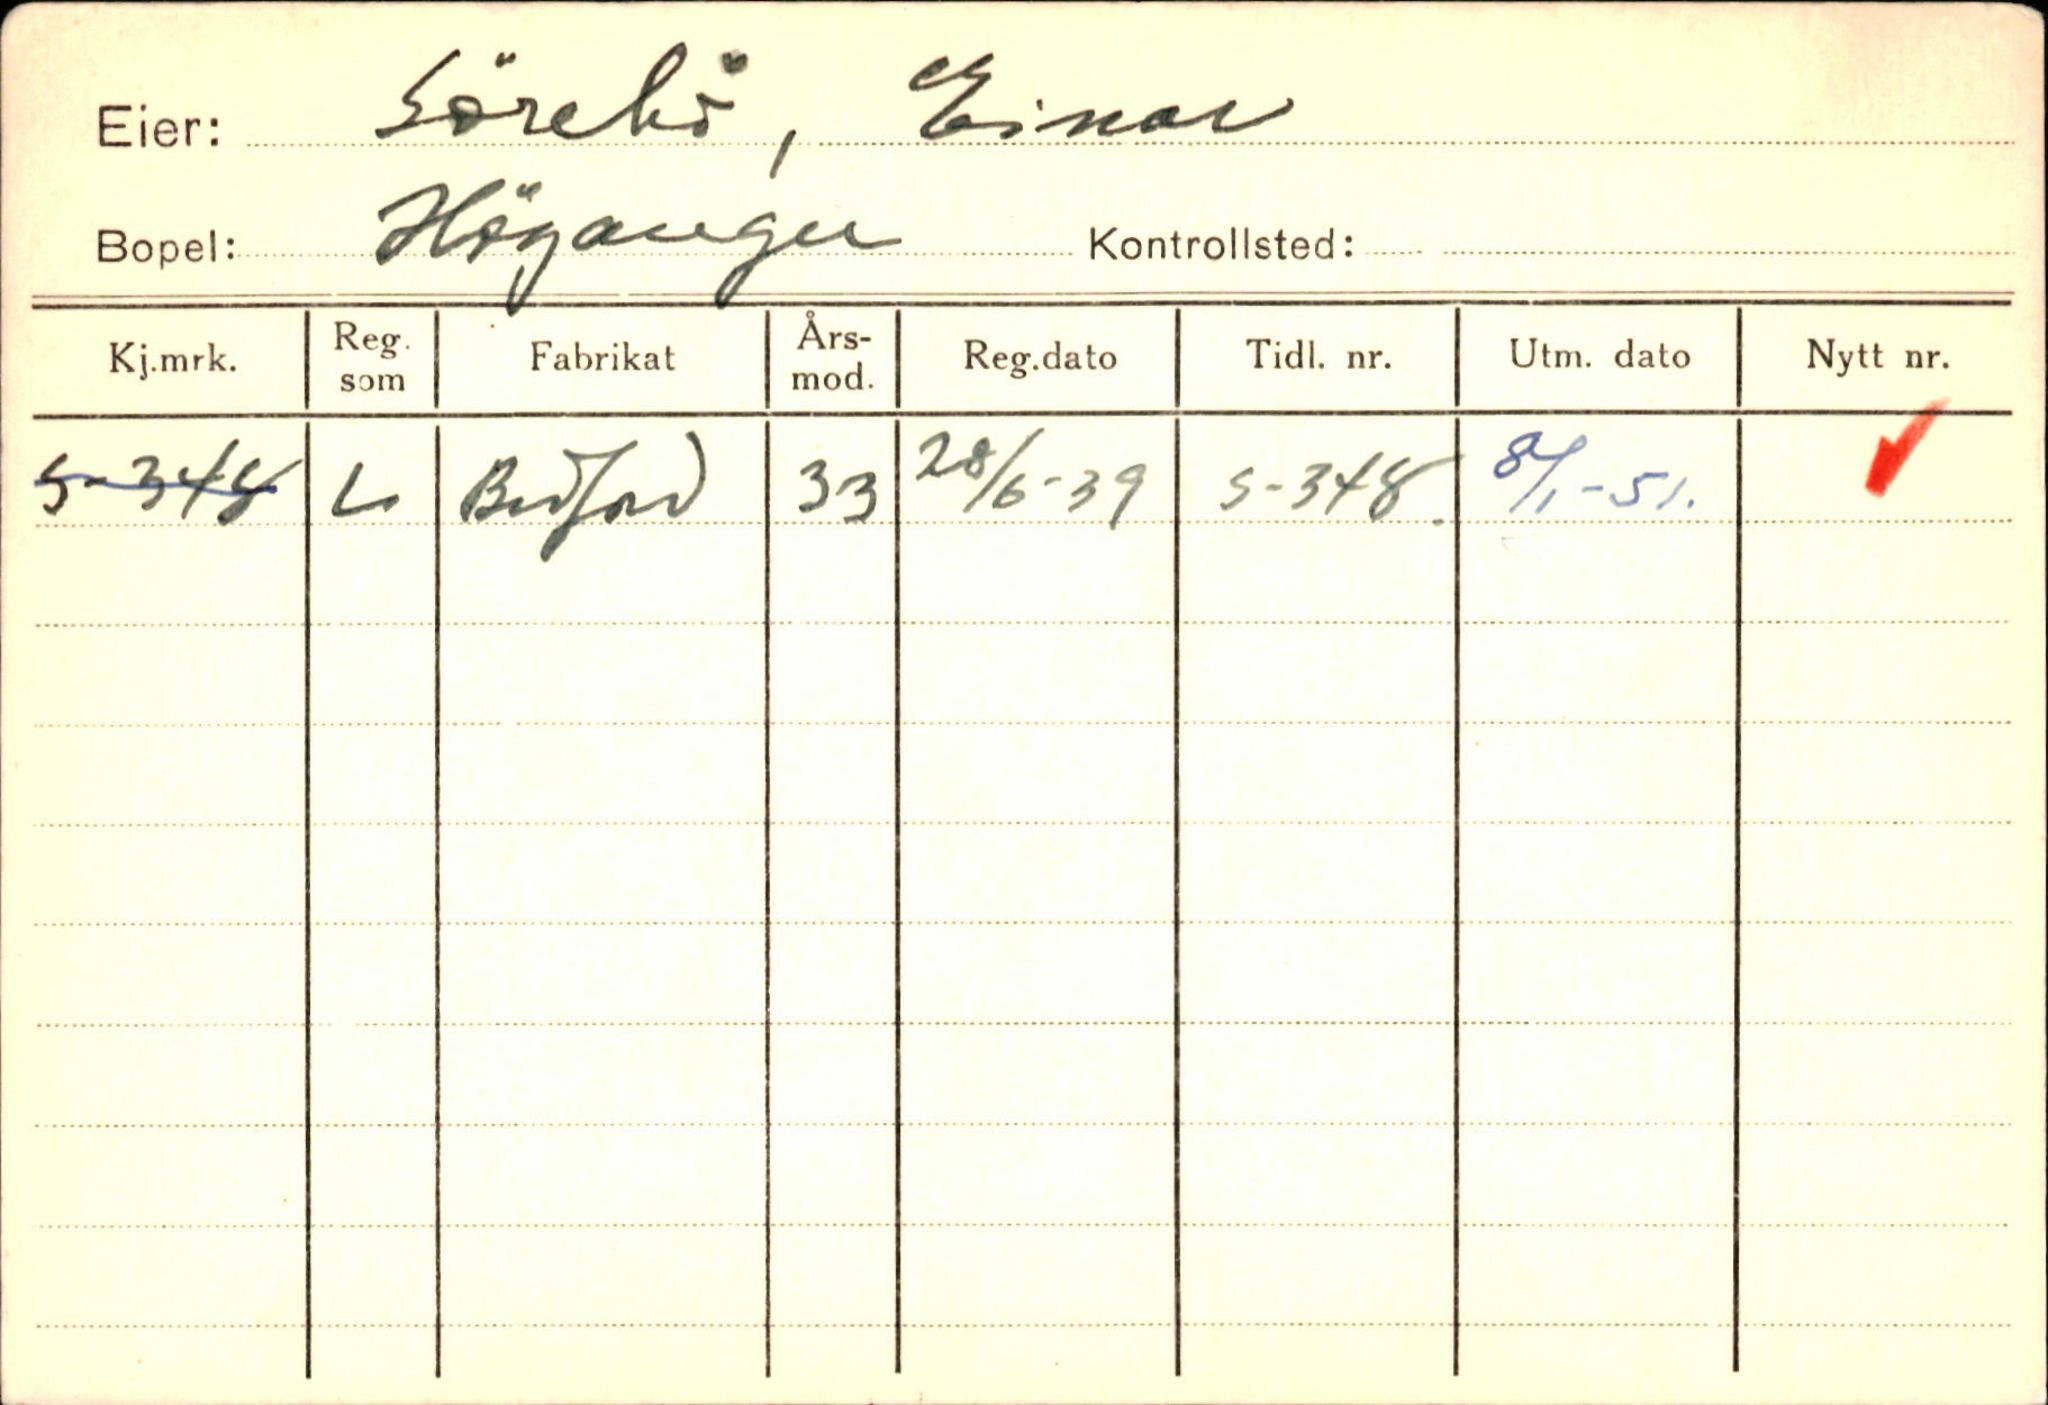 Eier: Sörebö, Einar
Bopel: Höyanger Kontrollsted:
Kj.mrk. Reg. som Fabrikat Års-mod. Reg.dato Tidl. nr. Utm. dato Nytt nr.
S-348 L. Bedford 33 28/6-39 S-348. 8/1-51.